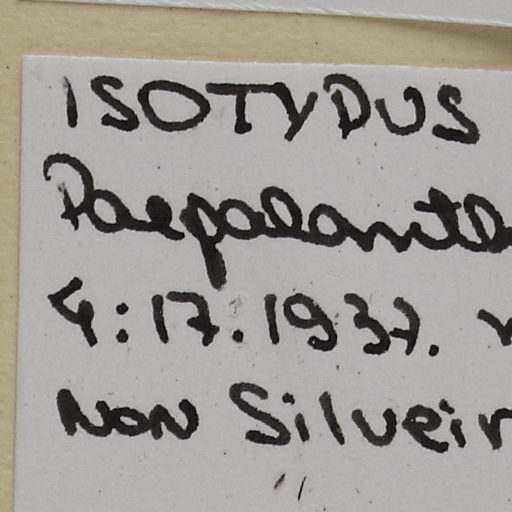 ISOTYPUS
Paepalanth
4:17.1937.
NON Silveir